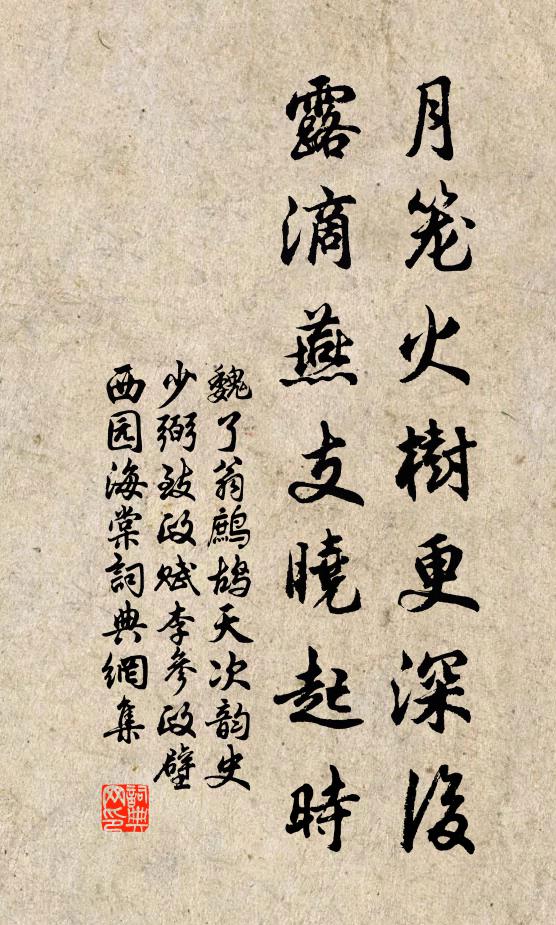 月笼火樹更深後
露滴燕支曉起時
魏了翁鷓鴣天次韵史
少弼致政赋李參政壁
西园海棠詞典網集
詞典网印